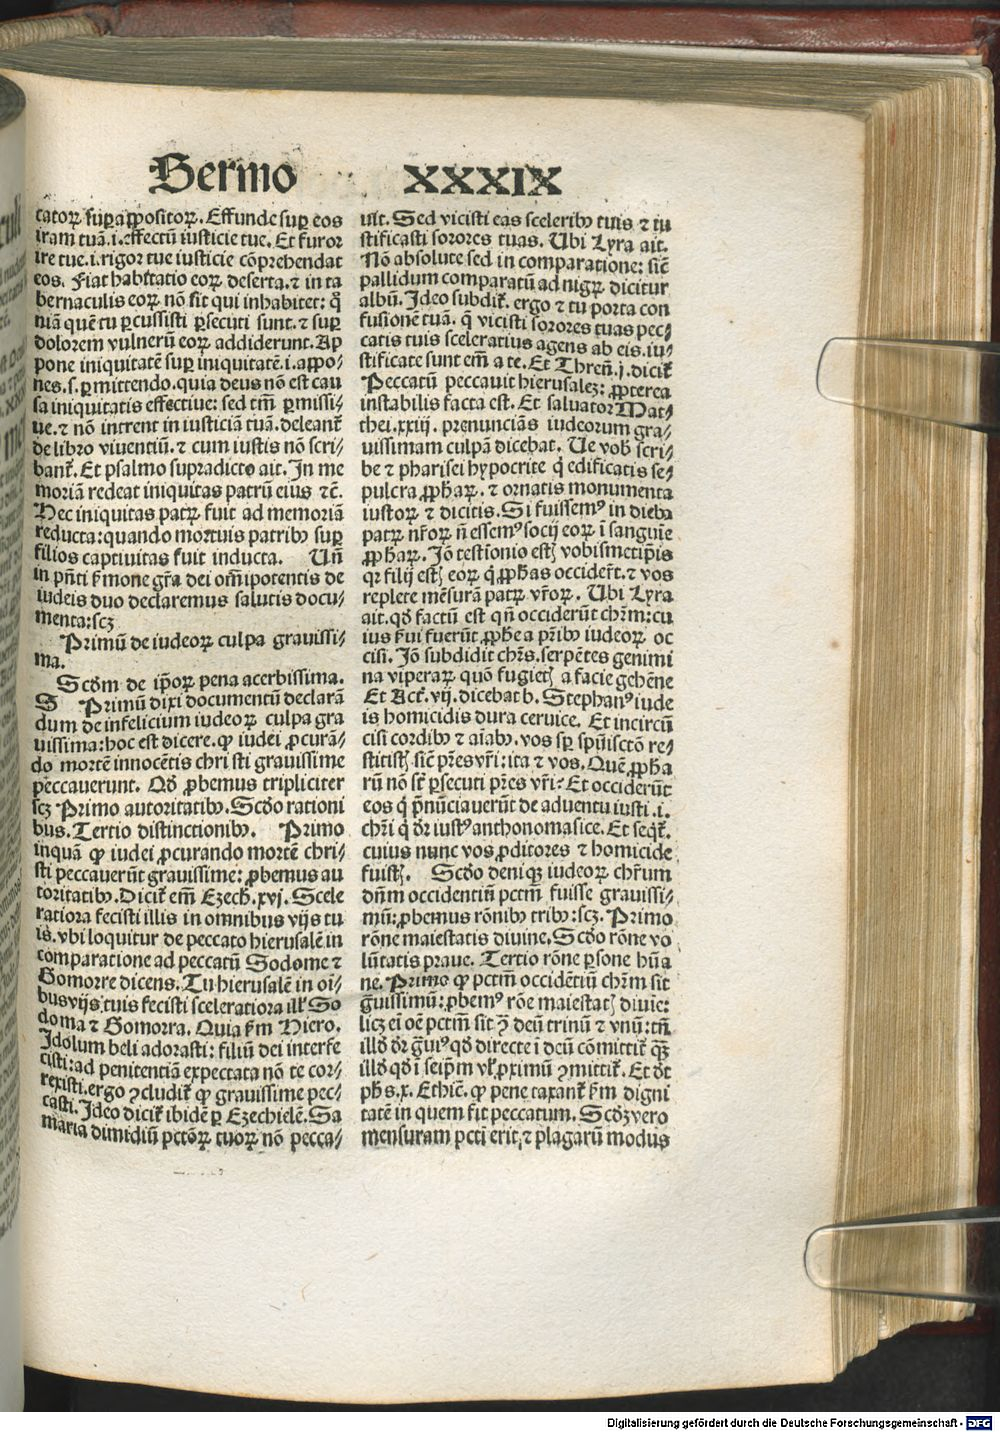 Sermo XXXIX
catoꝝ supꝛappositoꝝ. Effunde suꝑ eos
iram tuā.i.effectū iusticie tue. Et furor
ire tue.i.rigor tue iusticie cōprehendat
eos. Fiat habitatio eoꝝ deserta.⁊ in ta
bernaculis eoꝝ nō sit qui inhabitet: q̄
niā quē tu ꝑcussisti ꝑsecuti sunt.⁊ suꝑ
dolorem vulnerū eoꝝ addiderunt. Ap
pone iniquitatē suꝑ iniquitatē.i.appo⸗
nes.s.ꝑmittendo.quia deus nō est cau
sa iniquitatis effectiue: sed tm̄ ꝑmissi⸗
ue.⁊ nō intrent in iusticiā tuā.deleant᷑
de libro viuentiū.⁊ cum iustis nō scri⸗
bant᷑. Et psalmo supradicto ait. In me
moriā redeat iniquitas patrū eius ⁊c̄.
Hec iniquitas patꝝ fuit ad memoriā
reducta: quando mortuis patribꝰ suꝑ
filios captiuitas fuit inducta. Un̄
in pn̄ti ẜmone gr̄a dei om̄ipotentis de
iudeis duo declaremus salutis docu⸗
menta: scꝫ
Primū de iudeoꝝ culpa grauissi⸗
ma.
Scd̓m de ip̄oꝝ pena acerbissima.
S Primū dixi documentū declarā
dum de infelicium iudeoꝝ culpa gra
uissima: hoc est dicere. ꝙ iudei ꝓcurā⸗
do mortē innocētis christi grauissime
peccauerunt. Qd̓ ꝓbemus tripliciter
scꝫ Primo autoritatibꝰ. Scd̓o rationi
bus. Tertio distinctionibꝰ. Primo
inquā ꝙ iudei ꝓcurando mortē chri⸗
sti peccauerūt grauissime: ꝓbemus au
toritatibꝰ. Dicit᷑ em̄ Ezech.xvj. Scele
ratiora fecisti illis in omnibus vijs tu
is. vbi loquitur de peccato hierusalē in
comparatione ad peccatū Sodome ⁊
Gomorre dicens. Tu hierusalē in oī⸗
bus vijs tuis fecisti sceleratiora ill᷑ So
doma ⁊ Gomorra. Quia ẜm Hiero.
Idolum beli adorasti: filiū dei interfe
cisti: ad penitentiā expectata nō te cor⸗
rexisti. ergo ꝯcludit᷑ ꝙ grauissime pec⸗
casti. Ideo dicit᷑ ibidē ꝑ Ezechielē. Sa
maria dimidiū pctōꝝ tuoꝝ nō pecca⸗
uit. Sed vicisti eas sceleribꝰ tuis ⁊ iu
stificasti sorores tuas. Ubi Lyra ait.
Nō absolute sed in comparatione: sic̄
pallidum comparatū ad nigꝝ dicitur
albū. Ideo subdit᷑. ergo ⁊ tu porta con
fusionē tuā. q̄ vicisti sorores tuas pec⸗
catis tuis sceleratius agens ab eis. iu⸗
stificate sunt em̄ a te. Et Thren̄.j. dicit᷑
Peccatū peccauit hierusalē: ꝓpterea
instabilis facta est. Et saluator Mat⸗
thei.xxiij. prenuncians iudeorum gra⸗
uissimam culpā dicebat. Ue vob̓ scri⸗
be ⁊ pharisei hypocrite q̓ edificatis se⸗
pulcra ꝓph̄aꝝ. ⁊ ornatis monumenta
iustoꝝ ⁊ dicitis. Si fuissemꝰ in diebꝰ
patꝝ nr̄oꝝ n̄ essemꝰ socij eoꝝ ī sanguīe
ꝓph̄aꝝ. Iō testīonio estꝭ vobismetip̄is
qꝛ filij estꝭ eoꝝ q̓ ꝓph̄as occider̄t.⁊ vos
replete mēsurā patꝝ vr̄oꝝ. Ubi Lyra
ait. qd̓ factū est qn̄ occiderūt chr̄m: cu
ius ẜui fuerūt ꝓph̄e a pr̄ibꝰ iudeoꝝ oc
cisi. Iō subdidit chr̄s. serpētes genimi
na viperaꝝ quō fugietꝭ a facie gehēne
Et Act᷑. vij. dicebat b. Stephanꝰ iude
is homicidis dura ceruice. Et incircū
cisi cordibꝰ ⁊ aīabꝰ. vos sp̄ sp̄uisctō re⸗
stitistꝭ sic̄ pr̄es vr̄i: ita ⁊ vos. Quē ꝓph̄a
rū nō st̄ ꝑsecuti pr̄es vr̄i? Et occiderūt
eos q̓ pn̄nūciauerūt de aduentu iusti .i.
chr̄i q̓ dr̄ iustꝰ anthonomasice. Et seqt᷑.
cuius nunc vos ꝓditores ⁊ homicide
fuistꝭ. Scd̓o deniqꝫ iudeoꝝ chr̄um
dn̄m occidentiū pctm̄ fuisse grauissi⸗
mū: ꝓbemus rōnibꝰ tribꝰ: scꝫ. Primo
rōne maiestatis diuine. Scd̓o rōne vo
lūtatis praue. Tertio rōne ꝑsone hūa
ne. Primo ꝙ pctm̄ occidētiū chr̄m sit
g̓uissimū: ꝓbemꝰ rōe maiestatꝭ diuīe:
licꝫ eī oē pctm̄ sit ꝯ̄ deū trinū ⁊ vnū: tn̄
illd̓ dr̄ g̓uiꝰ qd̓ directe ī deū cōmittit᷑ qꝫ
illd̓ qd̓ ī seip̄m vl᷑ ꝓximū ꝯmittit᷑. Et d̓t
ph̄s.x. Ethic̄. ꝙ pene taxant᷑ ẜm digni
tatē in quem fit peccatum. Scd̓ꝫ vero
mensuram pcti erit, ⁊ plagarū modus
Digitalisierung gefördert durch die Deutsche Forschungsgemeinschaft - DFG